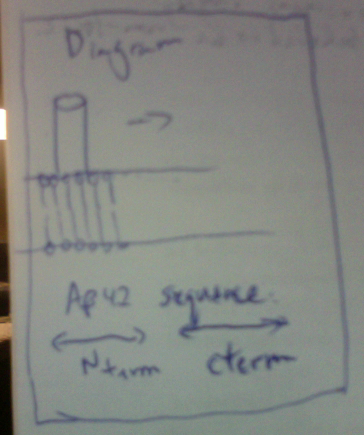 Diagram
Aβ42 sequence.
Nterm cterm